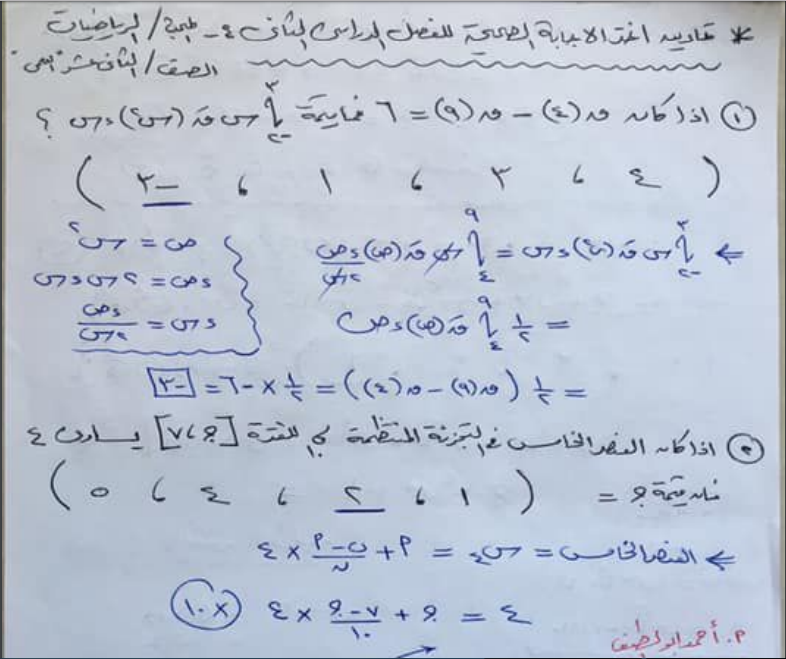 * تمارين اختر الاجابة الصحيحة للفصل الدراسي الثاني ٤- طبيعة / الرياضيات
الصف / الثاني عشر
① اذا كان ق(٤) – ق(٩) = ٦ فما قيمة ∫₋₂³ س قَ(س²) دس ؟
( ٤ ، ٣ ، ١ ، -٣ )
← ∫₋₂³ س قَ(س²) دس = ∫₄⁹ س قَ(ص) دص/٢س
ص = س²
دص = ٢س دس
دس = دص/٢س
= ١/٢ ∫₄⁹ قَ(ص) دص
= ١/٢ (ق(٩) – ق(٤)) = ١/٢ × -٦ = -٣
② اذا كان العنصر الخامس في التجزئة المنتظمة σ₁₀ للفترة [جـ ، ٧] يساوي ٤
فان قيمة جـ =
( ١ ، ٢ ، ٤ ، ٥ )
← العنصر الخامس = س₄ = أ + (ب – أ)/ن × ٤
٤ = جـ + (٧ – جـ)/١٠ × ٤ (× ١٠)
م. أحمد ابو لطيف